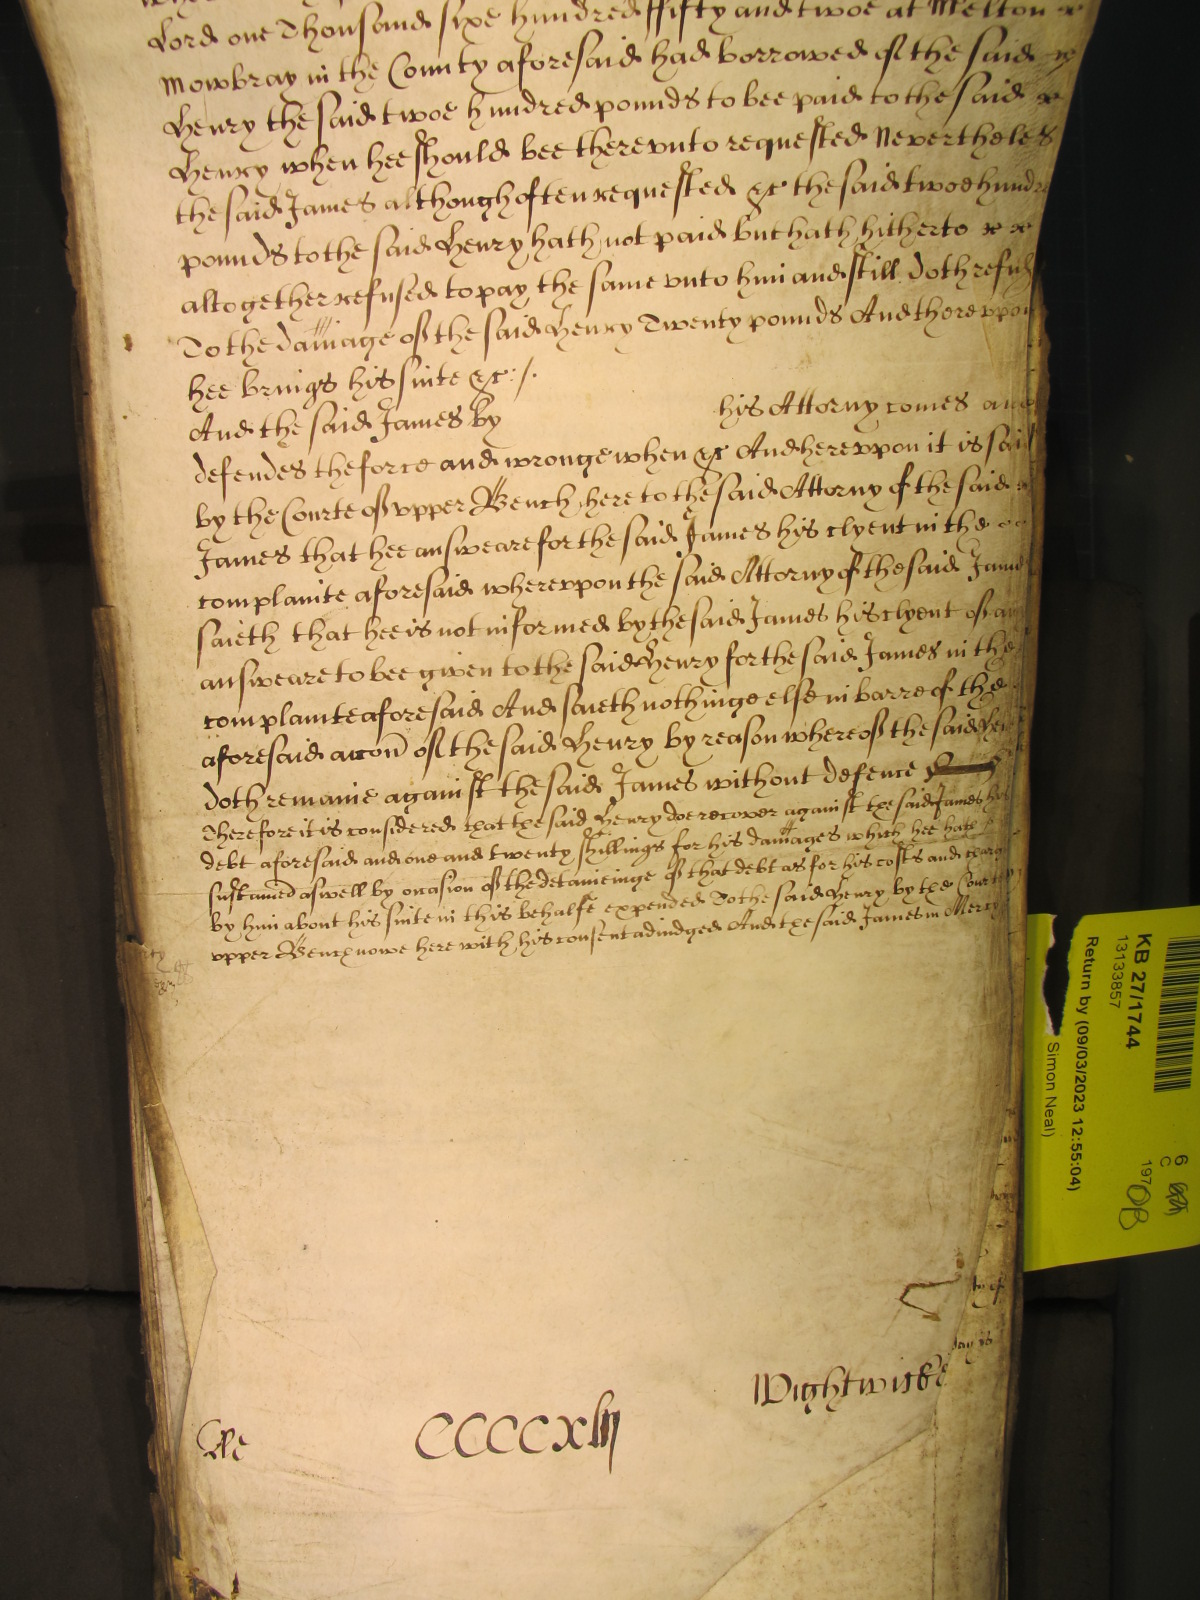 Lord one Thousand sixe hundred ffifty and twoe at Melton
Mowbray in the County aforesaid had borrowed of the said
Henry the said twoe hundred pounds to bee paid to the said
Henry when hee should bee therevnto requested Neverthelesse
the said James although often requested &c the said twoe hundre
pounds to the said Henry hath not paid but hath hitherto
altogether refused to pay the same vnto him and still doth refuse
To the damage of the said Henry Twenty pounds And therevpon
hee brings his suite &c:/.
And the said James by his Attorny comes and
defendes the force and wronge when &c And herevpon it is said
by the Courte of vpper Bench here to the said Attorny of the said
James that hee answeare for the said James his clyent in the
complainte aforesaid wherevpon the said Attorny of the said James
saieth that hee is not informed by the said James his clyent of any
answeare to bee given to the said Henry for the said James in the
complainte aforesaid And saieth nothinge else in barre of the
aforesaid accon of the said Henry by reason whereof the said Henry
doth remaine against the said James without defence
Therefore it is considered that the said Henry doe recover against the said James his
debt aforesaid and one and twenty shillings for his damages which hee hath
sustained aswell by occasion of the detaineinge of that debt as for his costs and charg
by him about his suite in this behalfe expended To the said Henry by the Courte
vpper Bench nowe here with his consent adiudged And the said James in Mercy
Wightwicke
CCCCxliij
KB 27/1744
13133857
Return by (09/03/2023 12:55:04)
Simon Neal)
6
C
197